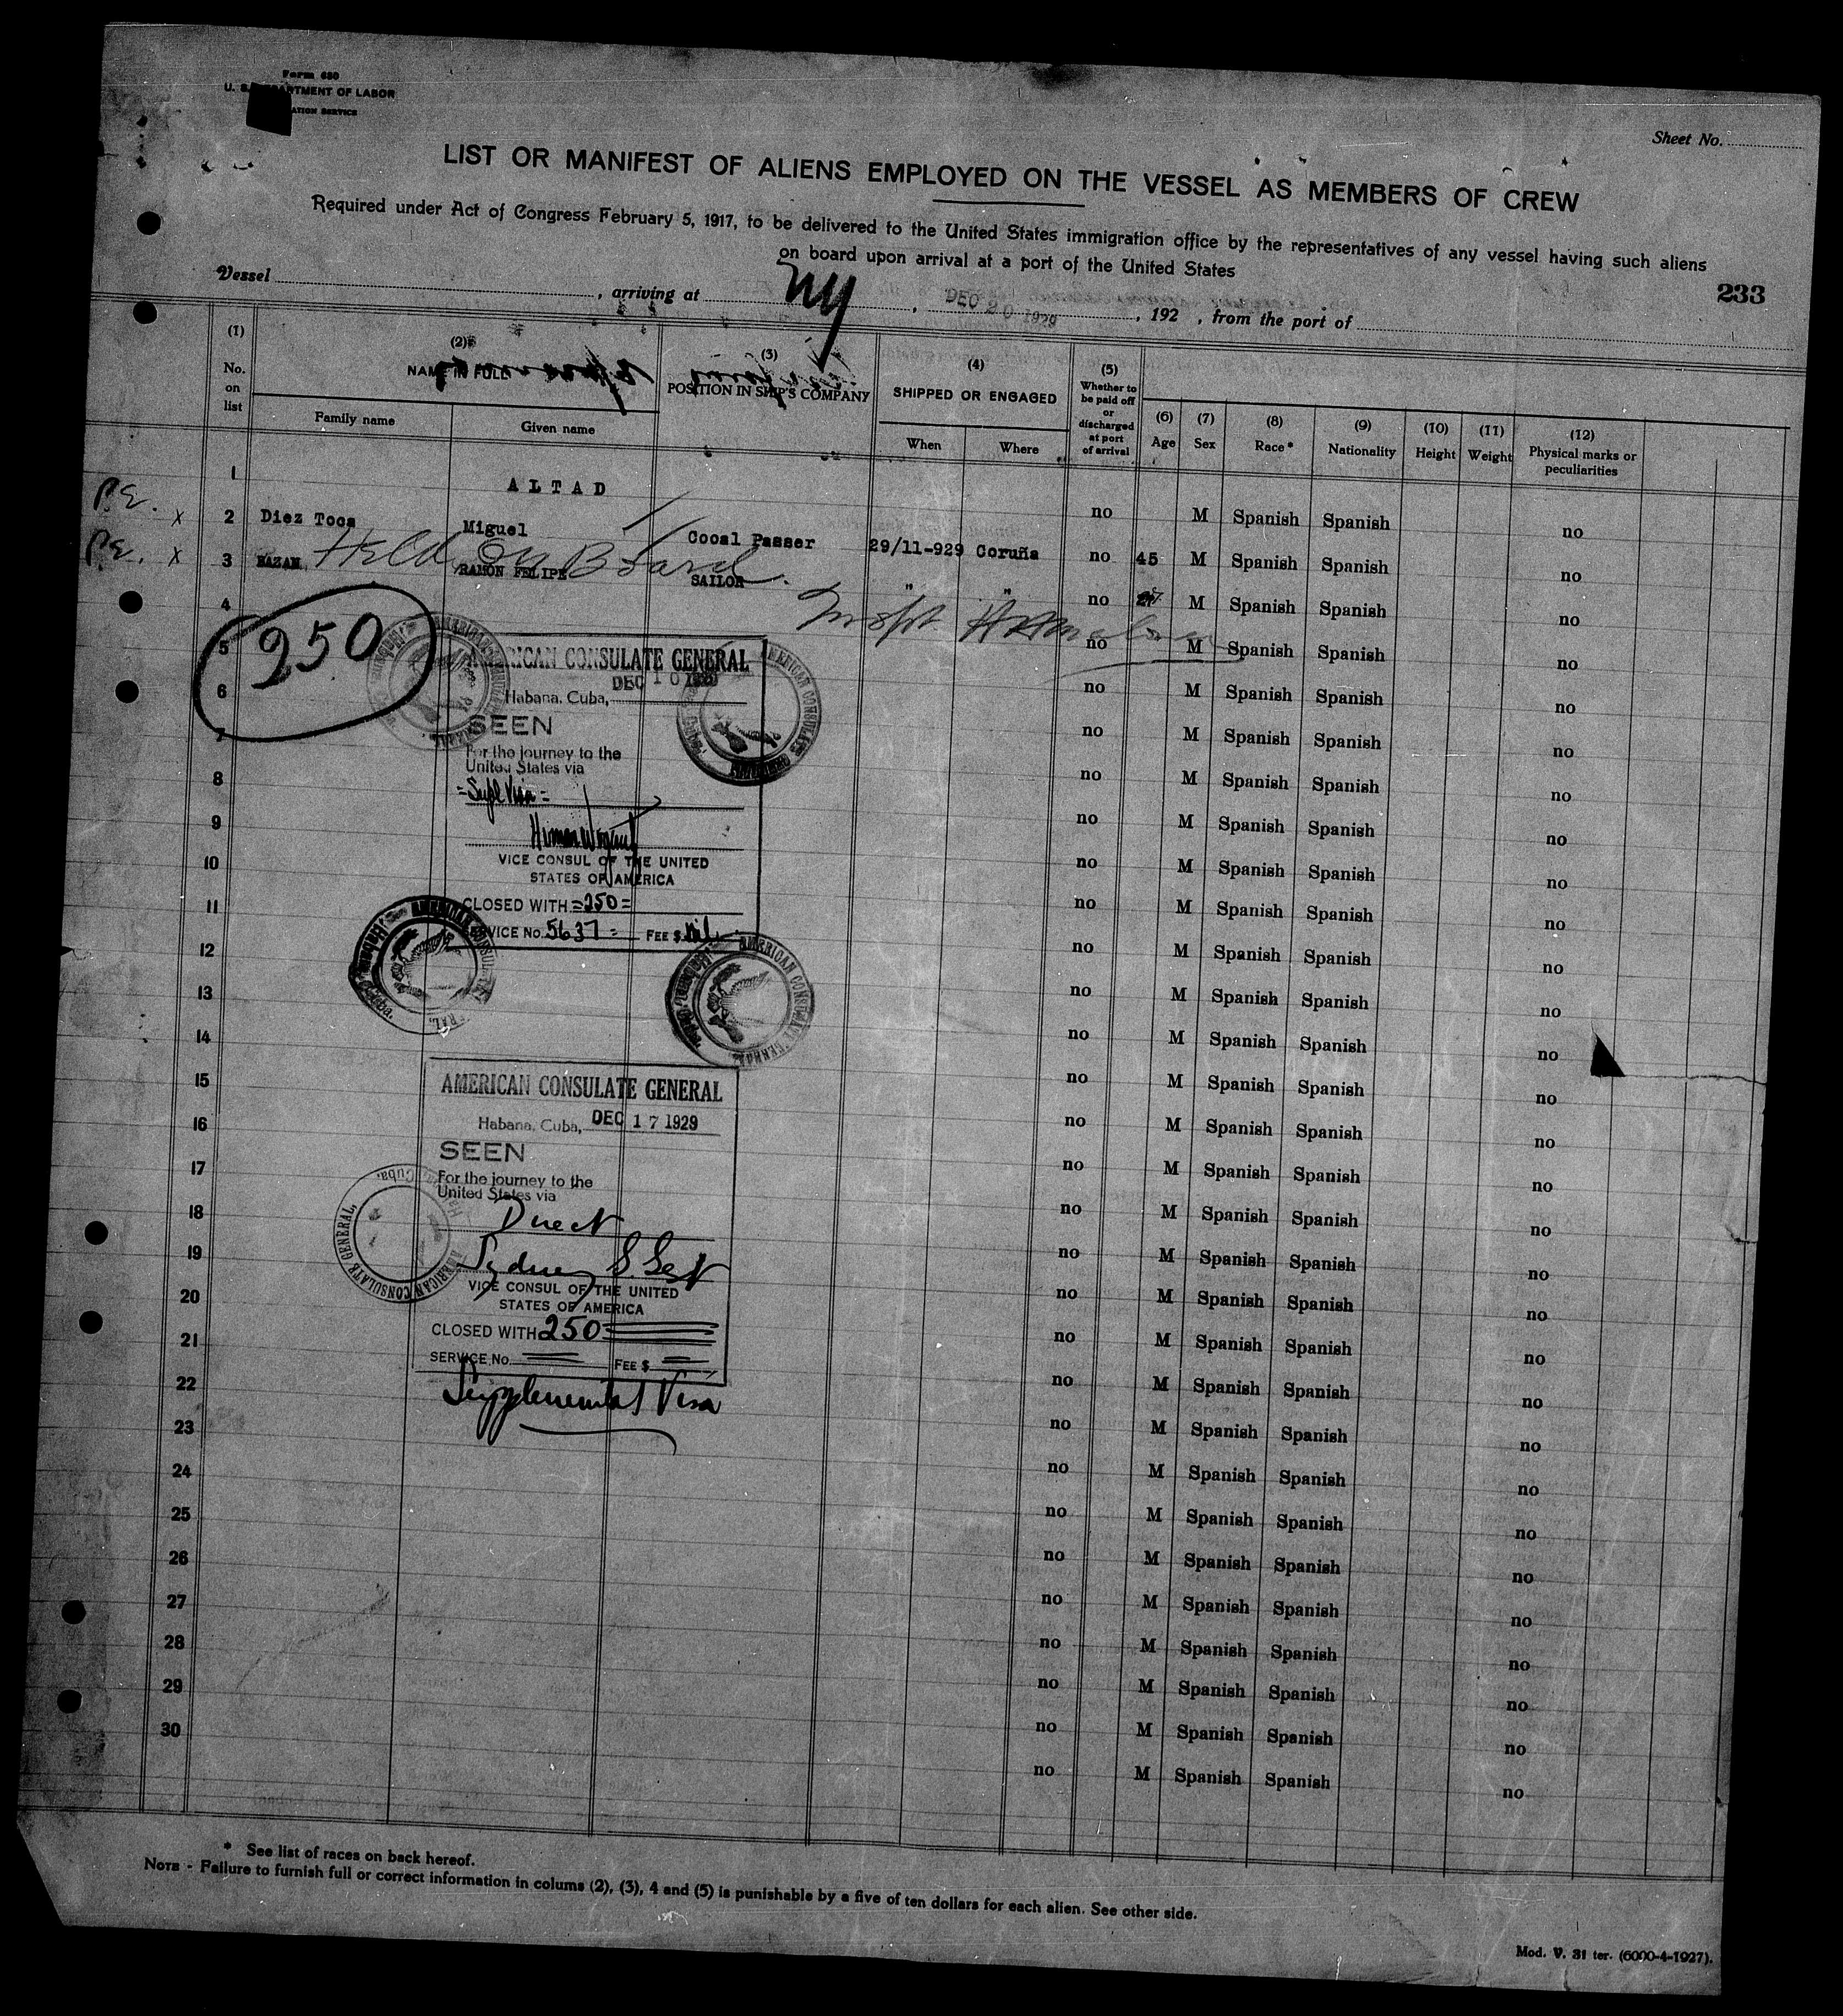 Form 680
U. S. DEPARTMENT OF LABOR
ATION SERVICE
Sheet No.
LIST OR MANIFEST OF ALIENS EMPLOYED ON THE VESSEL AS MEMBERS OF CREW
Required under Act of Congress February 5, 1917, to be delivered to the United States immigration office by the representatives of any vessel having such aliens
on board upon arrival at a port of the United States
233
Vessel , arriving at NY , DEC 20 1929 , 192 , from the port of
(1) (2) (3) (4) (5)
No. on list NAME IN FULL POSITION IN SHIP'S COMPANY SHIPPED OR ENGAGED Whether to be paid off or discharged at port of arrival
(6) (7) (8) (9) (10) (11) (12)
Family name Given name When Where Age Sex Race* Nationality Height Weight Physical marks or peculiarities
1 ALTAD no M Spanish Spanish no
P.E. x 2 Diez Toca Miguel Cocal Passer 29/11-929 Coruña no 45 M Spanish Spanish no
P.E. x 3 HAZAN RAMON FELIPE SAILOR " " no M Spanish Spanish no
Held on Board.
4 no M Spanish Spanish no
250
5 no M Spanish Spanish no
6 no M Spanish Spanish no
7 no M Spanish Spanish no
8 no M Spanish Spanish no
9 no M Spanish Spanish no
10 no M Spanish Spanish no
11 no M Spanish Spanish no
12 no M Spanish Spanish no
13 no M Spanish Spanish no
14 no M Spanish Spanish no
15 no M Spanish Spanish no
16 no M Spanish Spanish no
17 no M Spanish Spanish no
18 no M Spanish Spanish no
19 no M Spanish Spanish no
20 no M Spanish Spanish no
21 no M Spanish Spanish no
22 no M Spanish Spanish no
23 no M Spanish Spanish no
24 no M Spanish Spanish no
25 no M Spanish Spanish no
26 no M Spanish Spanish no
27 no M Spanish Spanish no
28 no M Spanish Spanish no
29 no M Spanish Spanish no
30 no M Spanish Spanish no
AMERICAN CONSULATE GENERAL
Habana, Cuba, DEC 10 1929
SEEN
For the journey to the
United States via
=Supl Visa=
VICE CONSUL OF THE UNITED
STATES OF AMERICA
CLOSED WITH =250=
SERVICE No. 5637= FEE $ nil
AMERICAN CONSULATE GENERAL
Habana, Cuba.
AMERICAN CONSULATE GENERAL
Habana, Cuba, DEC 17 1929
SEEN
For the journey to the
United States via
Direct
VICE CONSUL OF THE UNITED
STATES OF AMERICA
CLOSED WITH 250
SERVICE No. FEE $
Supplemental Visa
AMERICAN CONSULATE GENERAL
Habana, Cuba.
* See list of races on back hereof.
NOTE - Failure to furnish full or correct information in colums (2), (3), 4 and (5) is punishable by a five of ten dollars for each alien. See other side.
Mod. V. 31 ter. (6000-4-1927).